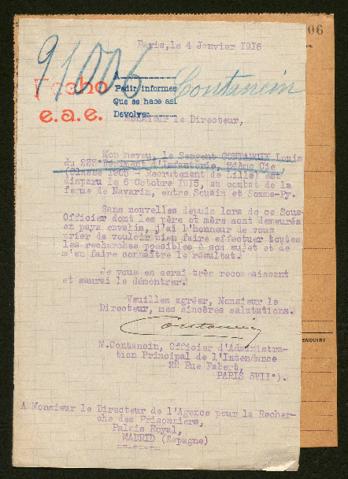 Paris, le 4 Janvier 1916
91006
Contancin
Fecho
e.a.e.
Pedir informes
Que se hace así
Devolver
Monsieur le Directeur,
Mon neveu, le Sergent CONTANCIN Louis
du Régiment d'Infanterie,
Recrutement de Lille) est
disparu le 6 Octobre 1915, au combat de la
ferme de Navarin, entre Souain et Somme-Py.
Sans nouvelles depuis lors de ce Sous-
Officier dont les père et mère sont demeurés
en pays envahis, j'ai l'honneur de vous
prier de vouloir bien faire effectuer toutes
les recherches possibles à son sujet et de
m'en faire connaître le résultat.
Je vous en serai très reconnaissant
et saurai le démontrer.
Veuillez agréer, Monsieur le
Directeur, mes sincères salutations.
Contancin
N. Contancin, Officier d'Administra-
tion Principal de l'Intendance
22 Rue Fabert,
PARIS (VII°).
A Monsieur le Directeur de l'Agence pour la Recher-
che des Prisonniers,
Palais Royal,
MADRID (Espagne)
06